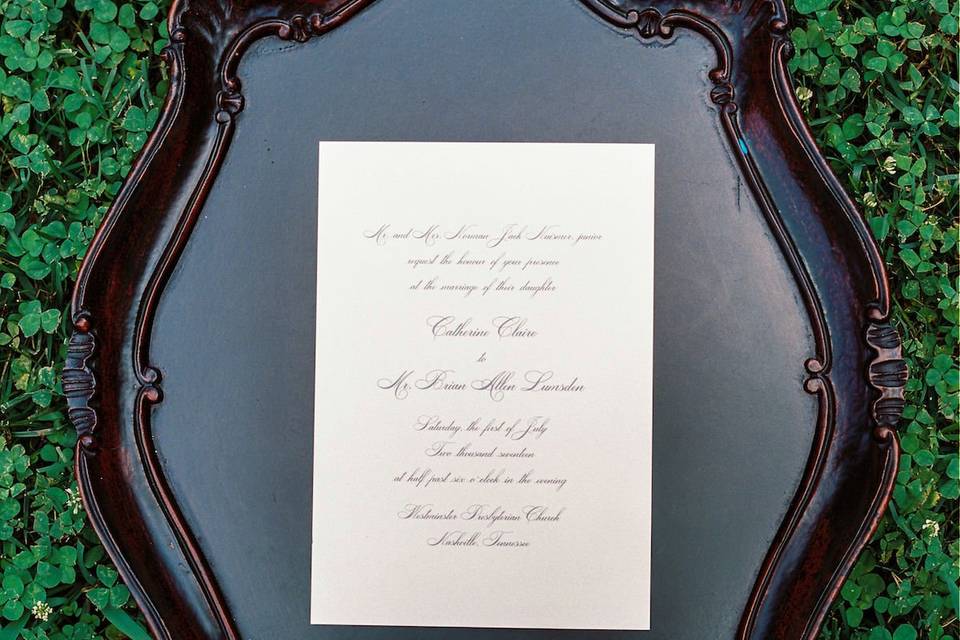 Mr. and Mrs. Norman Jack Nuismer, junior
request the honour of your presence
at the marriage of their daughter
Catherine Claire
to
Mr. Brian Allen Lumsden
Saturday, the first of July
Two thousand seventeen
at half past six o'clock in the evening
Westminster Presbyterian Church
Nashville, Tennessee